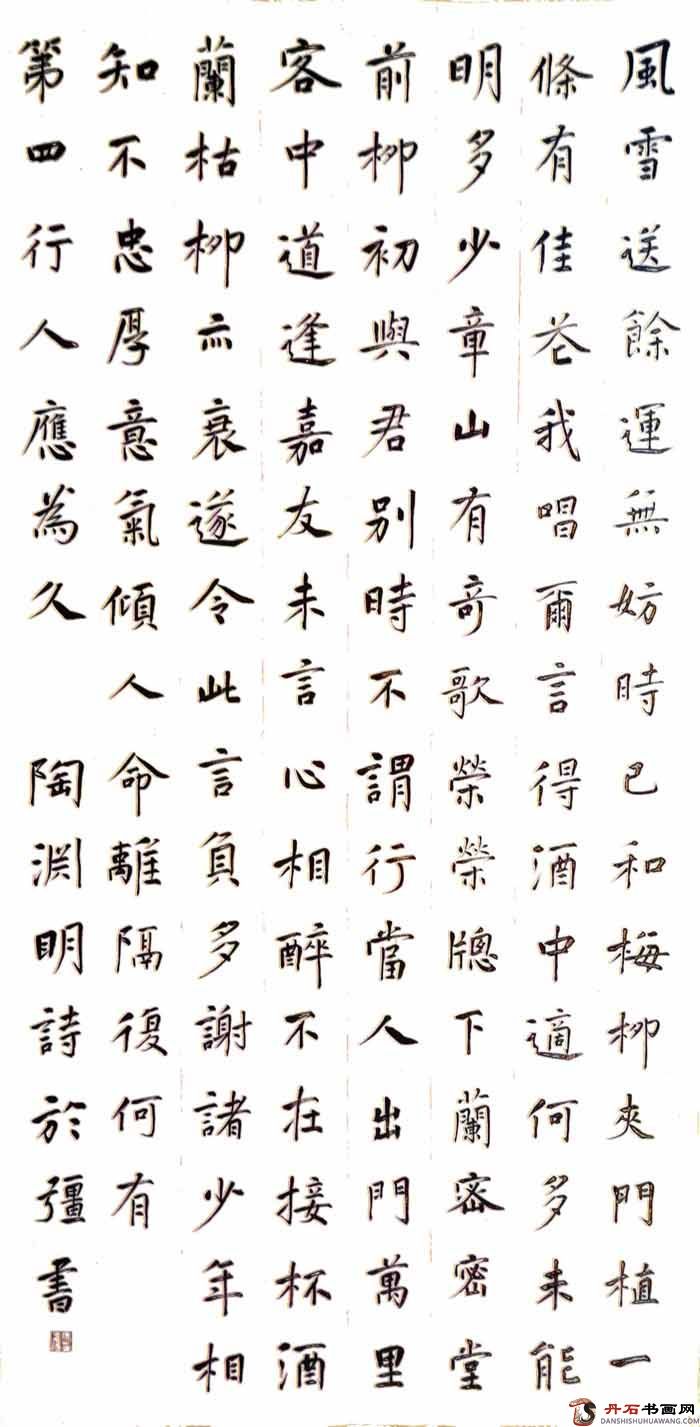 風雪送餘運無妨時已和梅柳夾門植一
條有佳花我唱爾言得酒中適何多未能
明多少章山有奇歌榮榮牕下蘭密密堂
前柳初與君別時不謂行當人出門萬里
客中道逢嘉友未言心相醉不在接杯酒
蘭枯柳亦衰遂令此言負多謝諸少年相
知不忠厚意氣傾人命離隔復何有
第四行人應為久 陶淵明詩於疆書
丹石书画网
DANSHISHUHUAWANG.COM